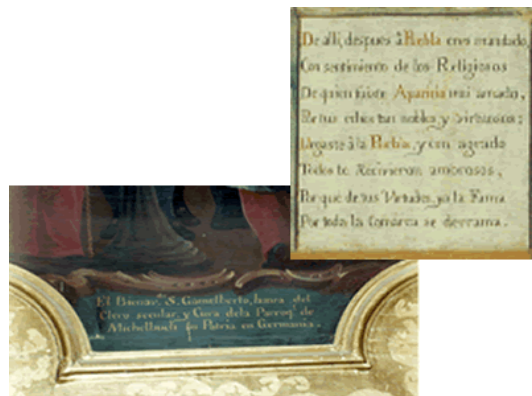 De alli, despues à Puebla eres mandado,
Con sentimiento de los Religiosos
De quien fuiste Aparicio mui amado,
Por tus echos tan nobles, y virtuosos:
Llegaste à la Puebla, y con agrado
Todos te Recivieron amorosos,
Porque de tus Virtudes, ya la Fama
Por toda la Comarca se derrama.
El Bienav. S. Gamelberto, honra del
Clero secular, y Cura dela Parroq.ͣ de
Michelbuch su Patria en Germania.